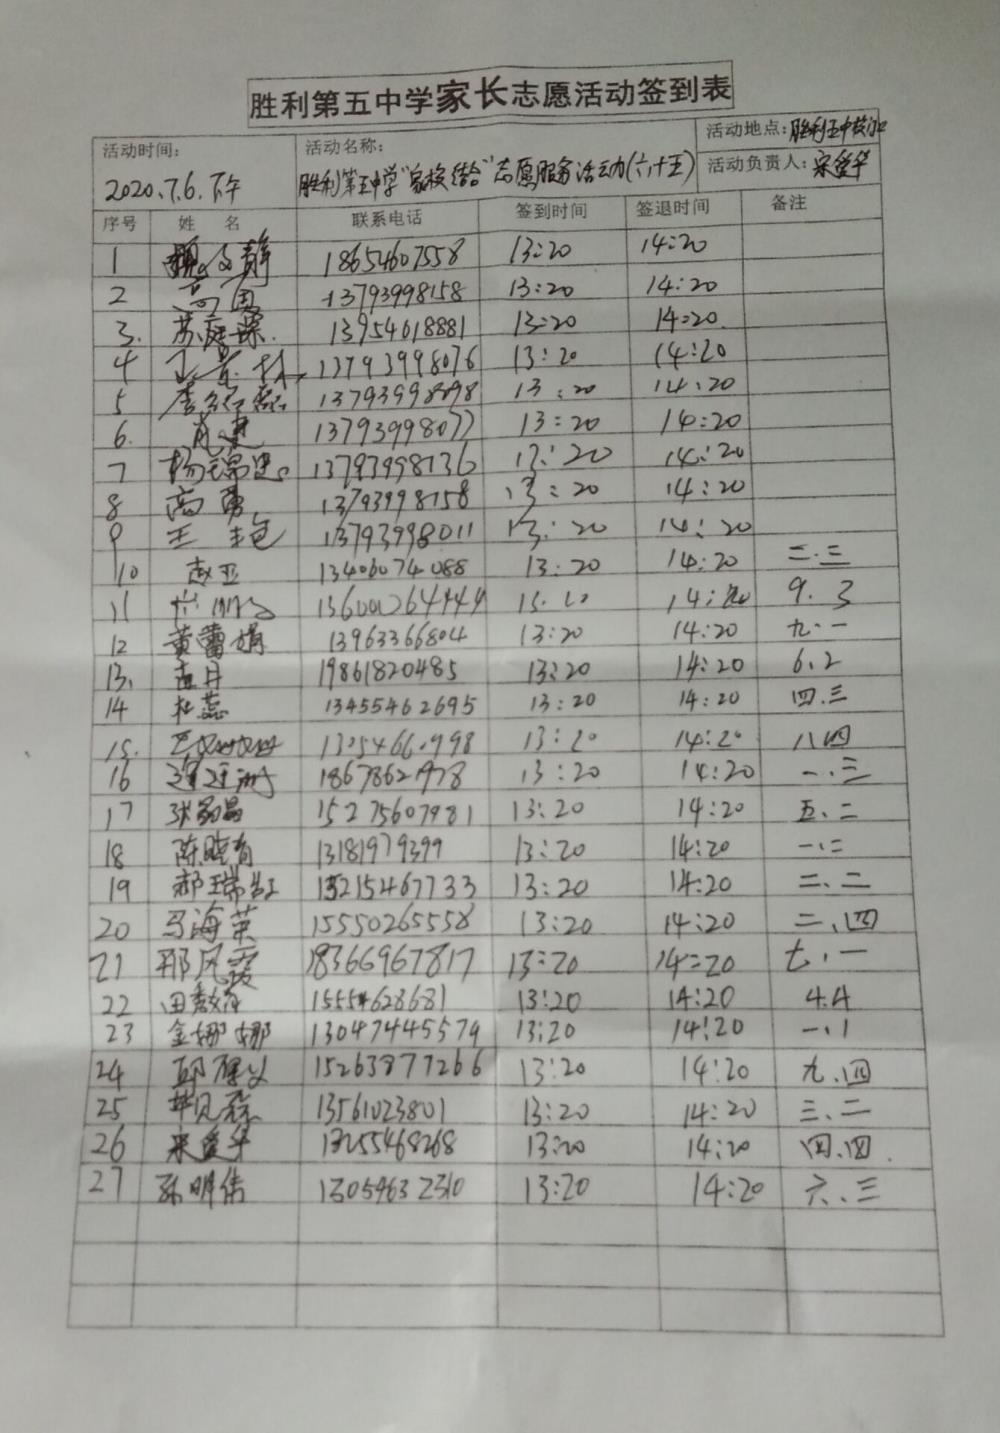 胜利第五中学家长志愿活动签到表
活动时间: 2020.7.6.下午
活动名称: 胜利第五中学"家校结合"志愿服务活动(六十五)
活动地点: 胜利五中校门口
活动负责人: 宋爱华
序号 姓 名 联系电话 签到时间 签退时间 备注
1 静 18654607558 13:20 14:20
2 高 13793998158 13:20 14:20
3. 苏庭 13954618881 13:20 14:20
4 13793998076 13:20 14:20
5 李 13793998898 13:20 14:20
6. 13793998077 13:20 14:20
7 杨 13793998136 13:20 14:20
8 高勇 13793998158 13:20 14:20
9 王艳 13793998011 13:20 14:20
10 赵卫 13406074088 13:20 14:20 二.三
11 14:20 9.3
12 黄蕾娟 13963366804 13:20 14:20 九.一
13. 19861820485 13:20 14:20 6.2
14 杜蕊 13455462695 13:20 14:20 四.三
15. 13:20 14:20 八四
16 13:20 14:20 一.三
17 张 15275607981 13:20 14:20 五.二
18 陈晓青 13181979399 13:20 14:20 一.二
19 郝瑞红 15215467733 13:20 14:20 二.二
20 马海荣 15550265558 13:20 14:20 二.四
21 邢风霞 18366967817 13:20 14:20 七.一
22 田 15554628681 13:20 14:20 4.4
23 金娜娜 13047445579 13:20 14:20 一.1
24 邱 15263877266 13:20 14:20 九.四
25 13561023801 13:20 14:20 三.二
26 宋爱华 13255468268 13:20 14:20 四.四.
27 孙明伟 13059632310 13:20 14:20 六.三